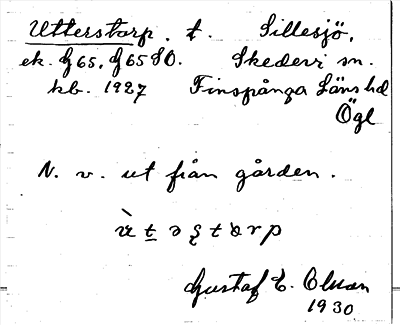 Utterstorp. t. Sillesjö,
ek. G65, G65 SO. Skedevi sn.
kb. 1927 Finspånga Läns hd
Ögl
N. v. ut från gården.
Gustaf E. Olsson
1930